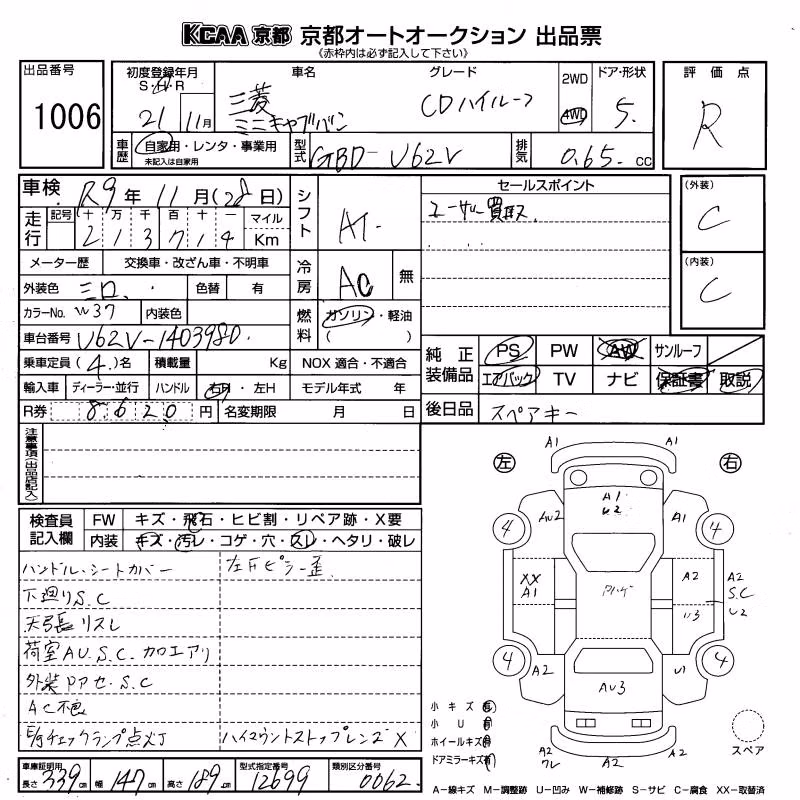 KCAA 京都 京都オートオークション 出品票
《赤枠内は必ず記入して下さい》
出品番号 1006
初度登録年月 S・H・R 21 11月
車名 三菱 ミニキャブバン
グレード CDハイルーフ
2WD 4WD
ドア・形状 5.
評価点 R
車歴 自家用・レンタ・事業用 未記入は自家用
型式 GBD-U62V
排気 0.65. CC
車検 R9年 11月(28日)
シフト AT-
セールスポイント
ユーザー買取.
(外装) C
走行 記号 十 万 千 百 十 一 マイル
2 1 3 7 1 4 Km
メーター歴 交換車・改ざん車・不明車
冷房 AC 無
(内装) C
外装色 シロ. 色替 有
カラーNo. W37 内装色
燃料 ガソリン・軽油 ( )
車台番号 U62V-1403980.
乗車定員(4.)名 積載量 Kg NOX 適合・不適合
純正装備品 PS PW AW サンルーフ
エアバック TV ナビ 保証書 取説
輸入車 ディーラー・並行 ハンドル 右H・左H モデル年式 年
R券 8620円 名変期限 月 日
後日品 スペアキー
注意事項(出品店記入)
左 右
A1 A1
A1 U2
4 AU2 A1 4
XX A1 アハゲ A2 A2 S.C U2
U3
4 A2 AU3 U1 4
A2 ワレ A2
スペア
検査員記入欄 FW キズ・飛石・ヒビ割・リペア跡・X要
内装 キズ・汚レ・コゲ・穴・スレ・ヘタリ・破レ
ハンドル・シートカバー 左Fピラー歪
下廻りS.C
天張リスレ
荷室AU.S.C.カロエアリ
外装PアセS.C
AC不良
E/gチェックランプ点灯 ハイマウントストップレンズX
小キズ有
小U有
ホイールキズ有
ドアミラーキズ有
車庫証明用 長さ 339cm 幅 147cm 高さ 189cm 型式指定番号 12699 類別区分番号 0062
A-線キズ M-調整跡 U-凹み W-補修跡 S-サビ C-腐食 XX-取替済